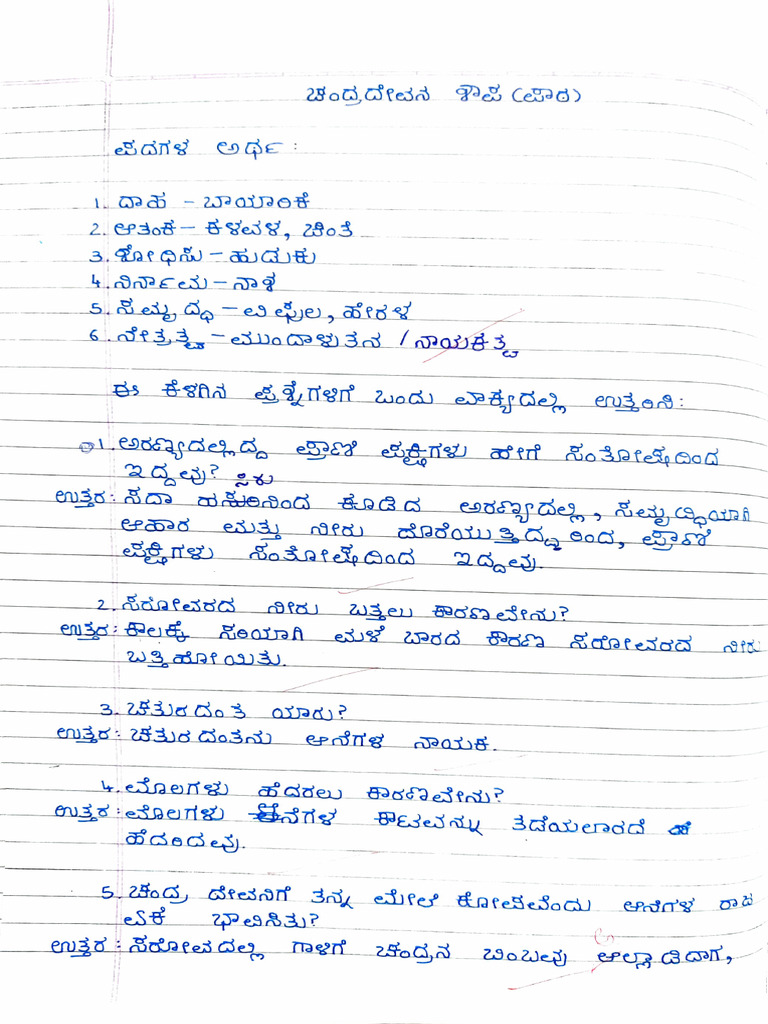 ಚಂದ್ರದೇವನ ಶಾಪ (ಪಾಠ)
ಪದಗಳ ಅರ್ಥ :
1. ದಾಹ - ಬಾಯಾರಿಕೆ
2. ಆತಂಕ - ಕಳವಳ, ಚಿಂತೆ
3. ಶೋಧಿಸು - ಹುಡುಕು
4. ನಿರ್ನಾಮ - ನಾಶ
5. ಸಮೃದ್ಧ - ವಿಫುಲ, ಹೇರಳ
6. ನೇತೃತ್ವ - ಮುಂದಾಳುತನ / ನಾಯಕತ್ವ
ಈ ಕೆಳಗಿನ ಪ್ರಶ್ನೆಗಳಿಗೆ ಒಂದು ವಾಕ್ಯದಲ್ಲಿ ಉತ್ತರಿಸಿ :
1. ಅರಣ್ಯದಲ್ಲಿದ್ದ ಪ್ರಾಣಿ ಪಕ್ಷಿಗಳು ಹೇಗೆ ಸಂತೋಷದಿಂದ
ಇದ್ದವು?
ಉತ್ತರ : ಸದಾ ಹಸುರಿನಿಂದ ಕೂಡಿದ ಅರಣ್ಯದಲ್ಲಿ, ಸಮೃದ್ಧಿಯಾಗಿ
ಆಹಾರ ಮತ್ತು ನೀರು ದೊರೆಯುತ್ತಿದ್ದ್ದರಿಂದ, ಪ್ರಾಣಿ
ಪಕ್ಷಿಗಳು ಸಂತೋಷದಿಂದ ಇದ್ದವು.
2. ಸರೋವರದ ನೀರು ಬತ್ತಲು ಕಾರಣವೇನು?
ಉತ್ತರ : ಕಾಲಕ್ಕೆ ಸರಿಯಾಗಿ ಮಳೆ ಬಾರದ ಕಾರಣ ಸರೋವರದ ನೀರು
ಬತ್ತಿಹೋಯಿತು.
3. ಚತುರದಂತ ಯಾರು?
ಉತ್ತರ : ಚತುರದಂತನು ಆನೆಗಳ ನಾಯಕ.
4. ಮೊಲಗಳು ಹೆದರಲು ಕಾರಣವೇನು?
ಉತ್ತರ : ಮೊಲಗಳು ಆನೆಗಳ ಕಾಟವನ್ನು ತಡೆಯಲಾರದೆ
ಹೆದರಿದವು.
5. ಚಂದ್ರ ದೇವನಿಗೆ ತನ್ನ ಮೇಲೆ ಕೋಪವೆಂದು ಆನೆಗಳ ರಾಜ
ಏಕೆ ಭಾವಿಸಿತು?
ಉತ್ತರ : ಸರೋವದಲ್ಲಿ ಗಾಳಿಗೆ ಚಂದ್ರನ ಬಿಂಬವು ಆಲ್ಲಾಡಿದಾಗ,